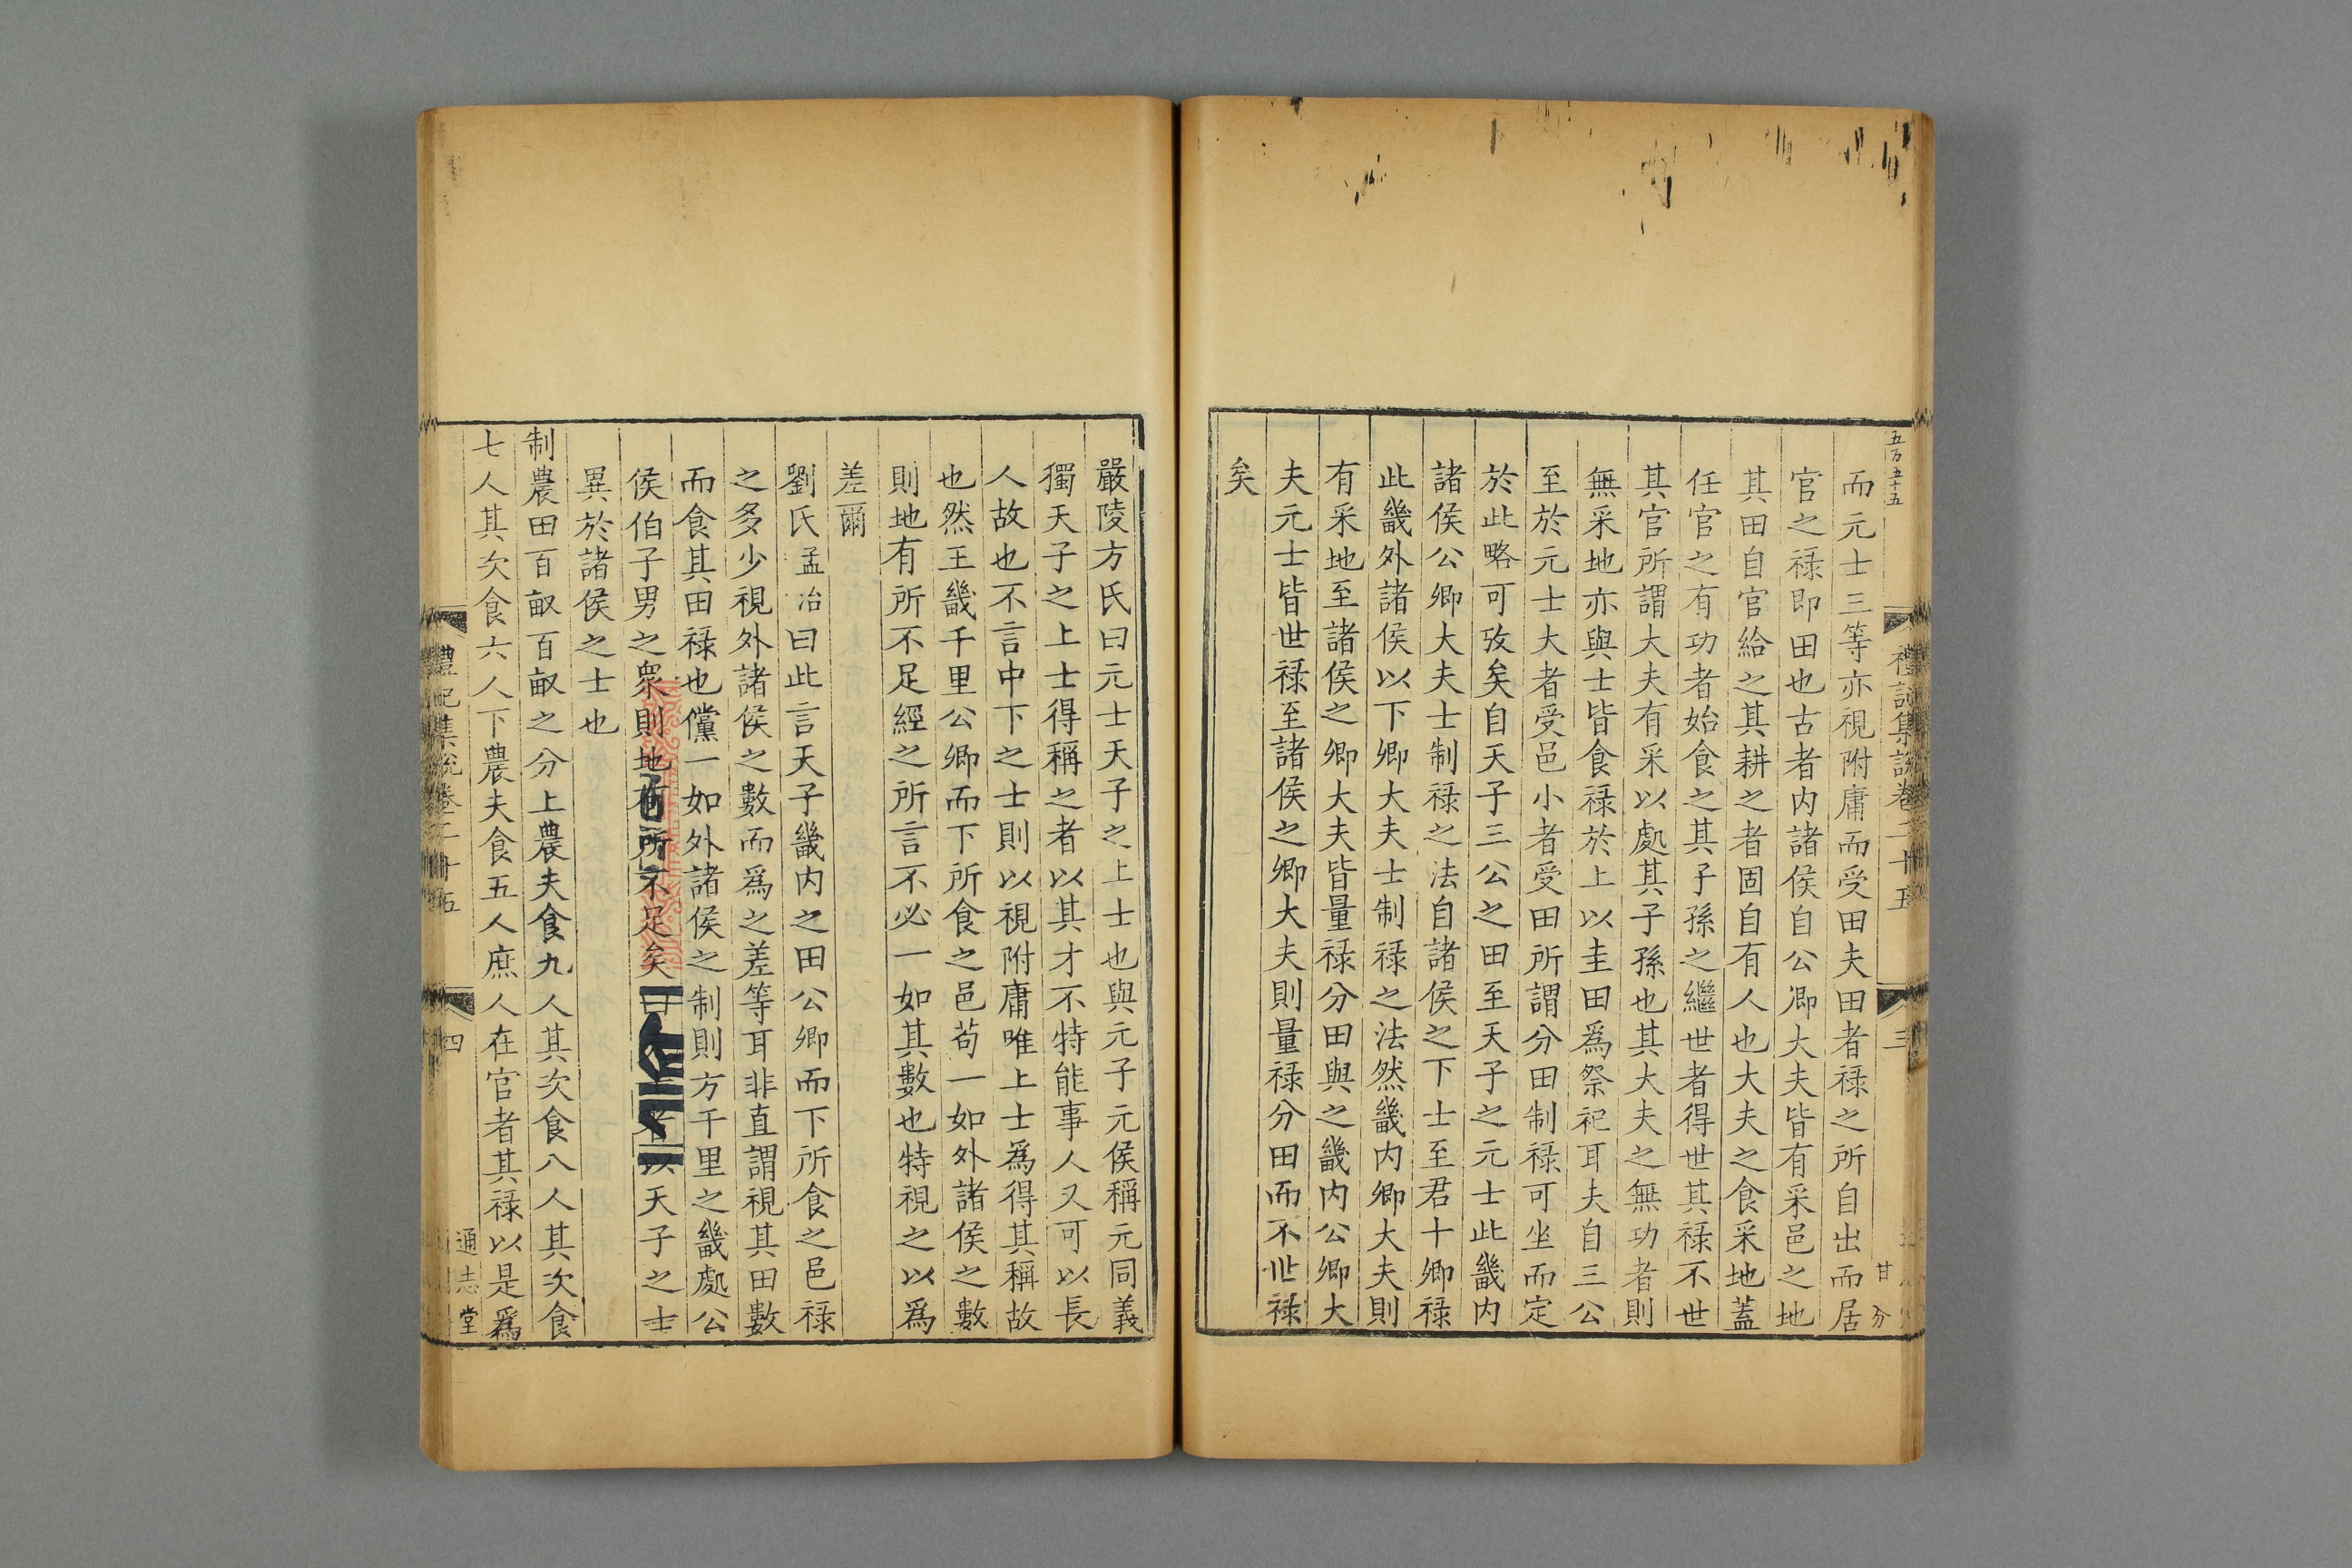 五百五十五
禮記集說卷二十五
三
甘
分
而元士三等亦視附庸而受田夫田者禄之所自出而居
官之禄即田也古者内諸侯自公卿大夫皆有采邑之地
其田自官給之其耕之者固自有人也大夫之食采地蓋
任官之有功者始食之其子孫之繼世者得世其禄不世
其官所謂大夫有采以處其子孫也其大夫之無功者則
無采地亦與士皆食禄於上以圭田爲祭祀耳夫自三公
至於元士大者受邑小者受田所謂分田制禄可坐而定
於此略可攷矣自天子三公之田至天子之元士此畿内
諸侯公卿大夫士制禄之法自諸侯之下士至君十卿禄
此畿外諸侯以下卿大夫士制禄之法然畿内卿大夫則
有采地至諸侯之卿大夫皆量禄分田與之畿内公卿大
夫元士皆世禄至諸侯之卿大夫則量禄分田而不世禄
矣
嚴陵方氏曰元士天子之上士也與元子元侯稱元同義
獨天子之上士得稱之者以其才不特能事人又可以長
人故也不言中下之士則以視附庸唯上士爲得其稱故
也然王畿千里公卿而下所食之邑苟一如外諸侯之數
則地有所不足經之所言不必一如其數也特視之以爲
差爾
劉氏孟冶曰此言天子畿内之田公卿而下所食之邑禄
之多少視外諸侯之數而爲之差等耳非直謂視其田數
而食其田禄也儻一如外諸侯之制則方千里之畿處公
侯伯子男之衆則地有所不足矣曰以天子之士
異於諸侯之士也
制農田百畝百畝之分上農夫食九人其次食八人其次食
七人其次食六人下農夫食五人庶人在官者其禄以是爲
禮記集說卷二十五
四
通志堂